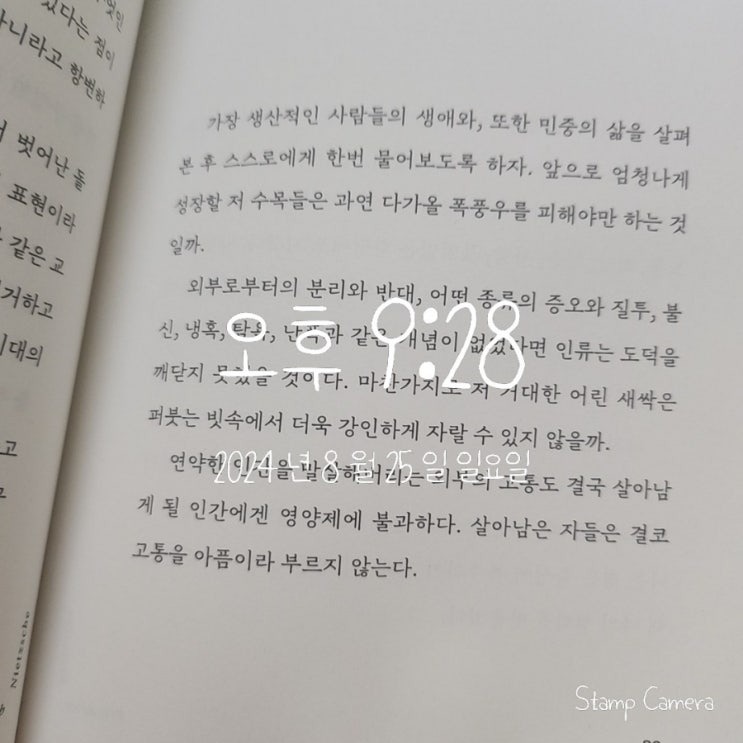 있다는 점이
아니라고 항변하
벗어난 돌
표현이라
같은 교
거하고
시대의
고
가장 생산적인 사람들의 생애와, 또한 민중의 삶을 살펴
본 후 스스로에게 한번 물어보도록 하자. 앞으로 엄청나게
성장할 저 수목들은 과연 다가올 폭풍우를 피해야만 하는 것
일까.
외부로부터의 분리와 반대, 어떤 종류의 증오와 질투, 불
신, 냉혹, 탐욕, 난폭과 같은 개념이 없었다면 인류는 도덕을
깨닫지 못했을 것이다. 마찬가지로 저 거대한 어린 새싹은
퍼붓는 빗속에서 더욱 강인하게 자랄 수 있지 않을까.
연약한 인간을 말살해버리는 외부의 고통도 결국 살아남
게 될 인간에겐 영양제에 불과하다. 살아남은 자들은 결코
고통을 아픔이라 부르지 않는다.
오후 9:28
2024년 8월 25일 일요일
Nietzsche
Stamp Camera